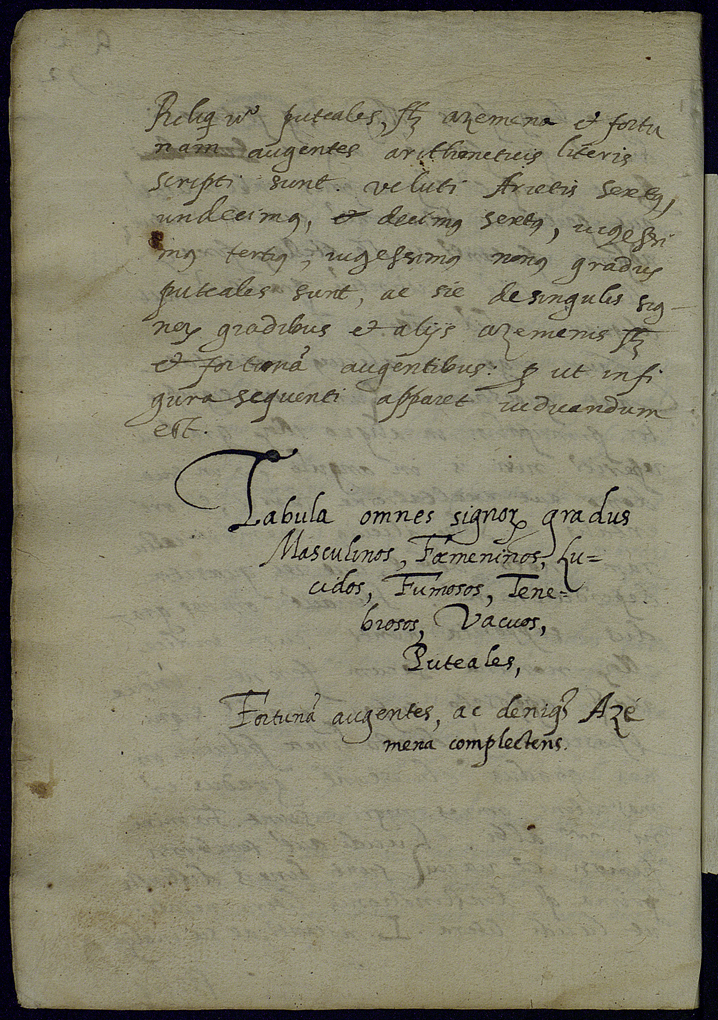 puteales, azemena et fortu
nam augentes arithmeticis literis
scripti sunt. veluti Arietis sextus,
undecimus, et decimus sextus, uigessi
mus tertius, uigessimus nonus gradus
puteales sunt, ac sic de singulis sig-
nor gradibus et alijs azemenis
et fortunā augentibus: ut in fi
gura sequenti apparet
est.
Tabula omnes signor gradus
Masculinos, Fœmeninos, Lu=
cidos, Fumosos, Tene=
brosos, Vacuos,
Puteales,
Fortunā augentes, ac deniqȝ Azé
mena complectens.